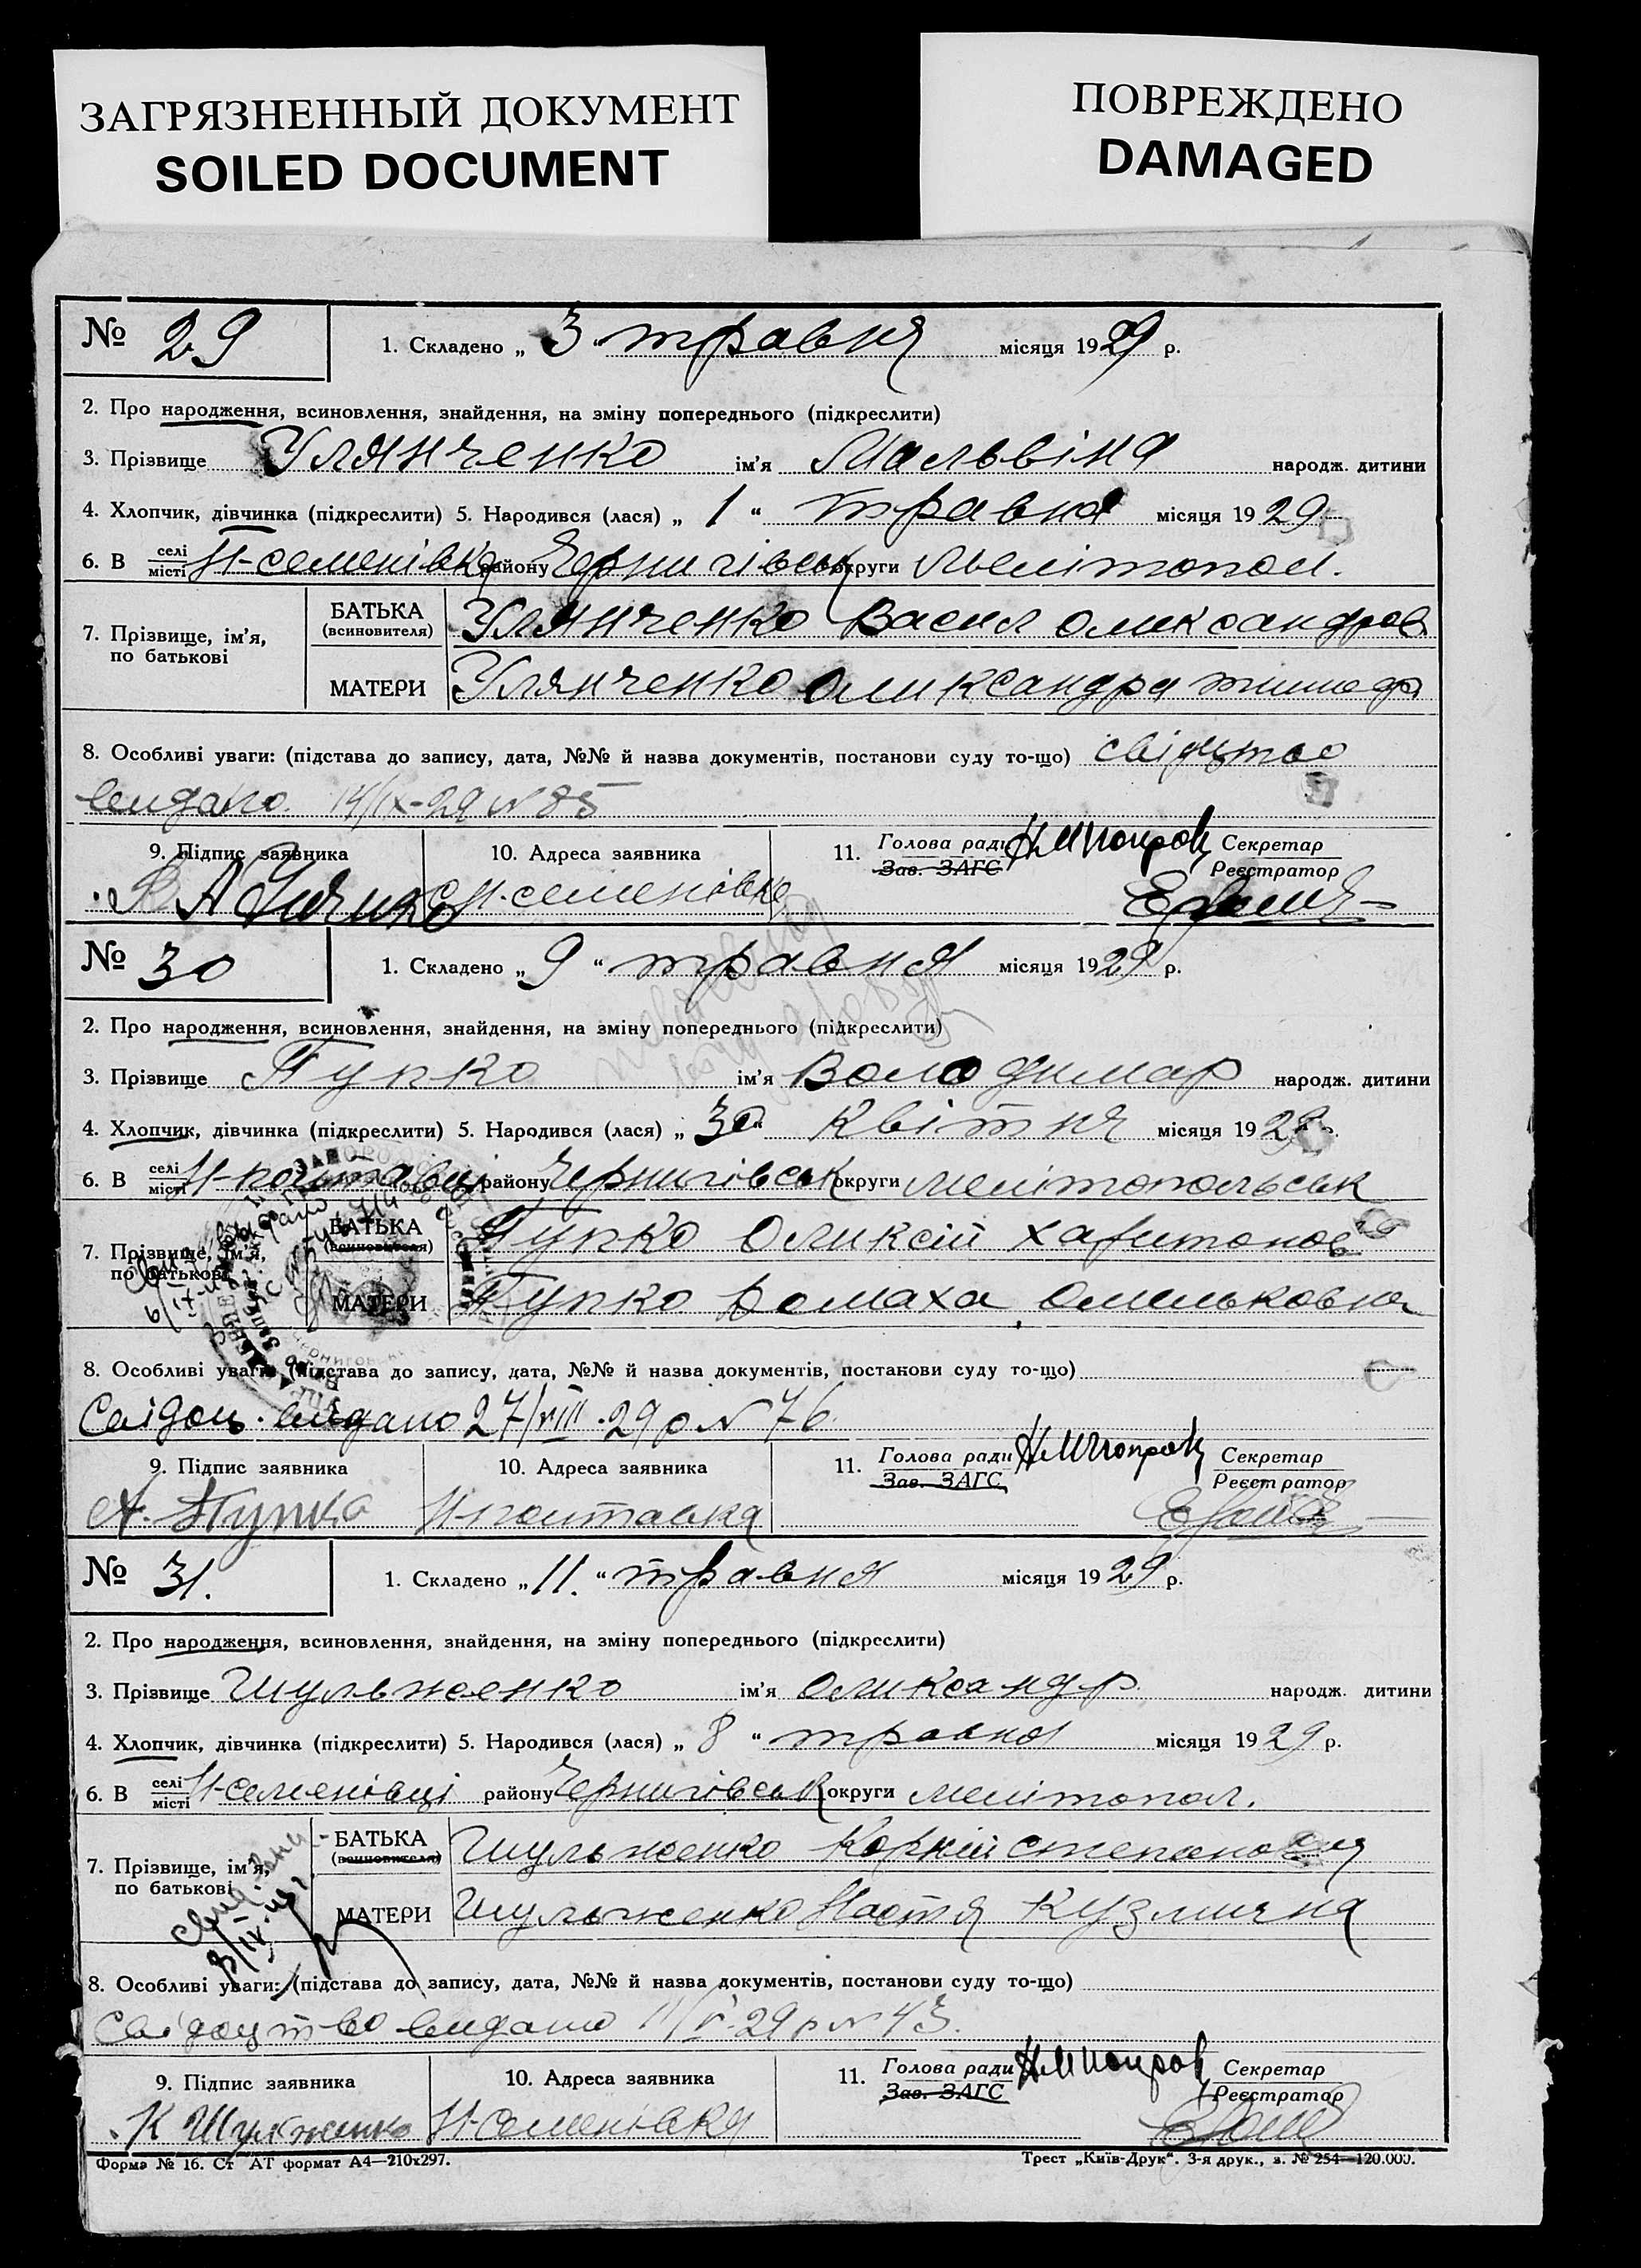 ЗАГРЯЗНЕННЫЙ ДОКУМЕНТ
SOILED DOCUMENT
ПОВРЕЖДЕНО
DAMAGED
№ 29 1. Складено „ 3 “ травня місяця 1929 р.
2. Про народження, всиновлення, знайдення, на зміну попереднього (підкреслити)
3. Прізвище Улянченко ім'я Мальвіна народж. дитини
4. Хлопчик, дівчинка (підкреслити) 5. Народився (лася) „ 1 “ травня місяця 1929
6. В селі місті Н-семенівка району Чернигівськ округи Мелітопол.
7. Прізвище, ім'я, по батькові
БАТЬКА (всиновителя) Улянченко Васил Олександров
МАТЕРИ Улянченко Олександра
8. Особливі уваги: (підстава до запису, дата, №№ й назва документів, постанови суду то-що)
видано 14/IX-29 N 85
9. Підпис заявника 10. Адреса заявника 11. Голова ради Зав. ЗАГС Секретар Реєстратор
Н-семенівка
№ 30 1. Складено „ 9 “ травня місяця 1929 р.
2. Про народження, всиновлення, знайдення, на зміну попереднього (підкреслити)
3. Прізвище Пупко ім'я Володимар народж. дитини
4. Хлопчик, дівчинка (підкреслити) 5. Народився (лася) „ 30 “ Квітня місяця 1929 р.
6. В селі місті Н-полтавці району Чернигівськ округи Мелітопольськ
7. Прізвище, ім'я, по батькові
БАТЬКА (всиновителя) Пупко Оликсій Харитонов
МАТЕРИ Пупко Домаха Омельковна
8. Особливі уваги: (підстава до запису, дата, №№ й назва документів, постанови суду то-що)
Свідоц. видано 27/VIII-29 р N 76.
9. Підпис заявника 10. Адреса заявника 11. Голова ради Зав. ЗАГС Секретар Реєстратор
А. Пупко Н-полтавка
№ 31. 1. Складено „ 11. “ травня місяця 1929 р.
2. Про народження, всиновлення, знайдення, на зміну попереднього (підкреслити)
3. Прізвище Шульженко ім'я Олександр народж. дитини
4. Хлопчик, дівчинка (підкреслити) 5. Народився (лася) „ 8 “ травня місяця 1929 р.
6. В селі місті Н-семенівці району Чернигівськ округи Мелітопол.
7. Прізвище, ім'я, по батькові
БАТЬКА (всиновителя) Шульженко Корній
МАТЕРИ Шульженко Настя Кузмична
8. Особливі уваги: (підстава до запису, дата, №№ й назва документів, постанови суду то-що)
Свідоцтво видано 11/V-29 р N 43.
9. Підпис заявника 10. Адреса заявника 11. Голова ради Зав. ЗАГС Секретар Реєстратор
К Шулженко Н-семенівка
Форма № 16. Ст АТ формат А4—210х297.
Трест „Київ-Друк“. 3-я друк., з. № 254—120.000.